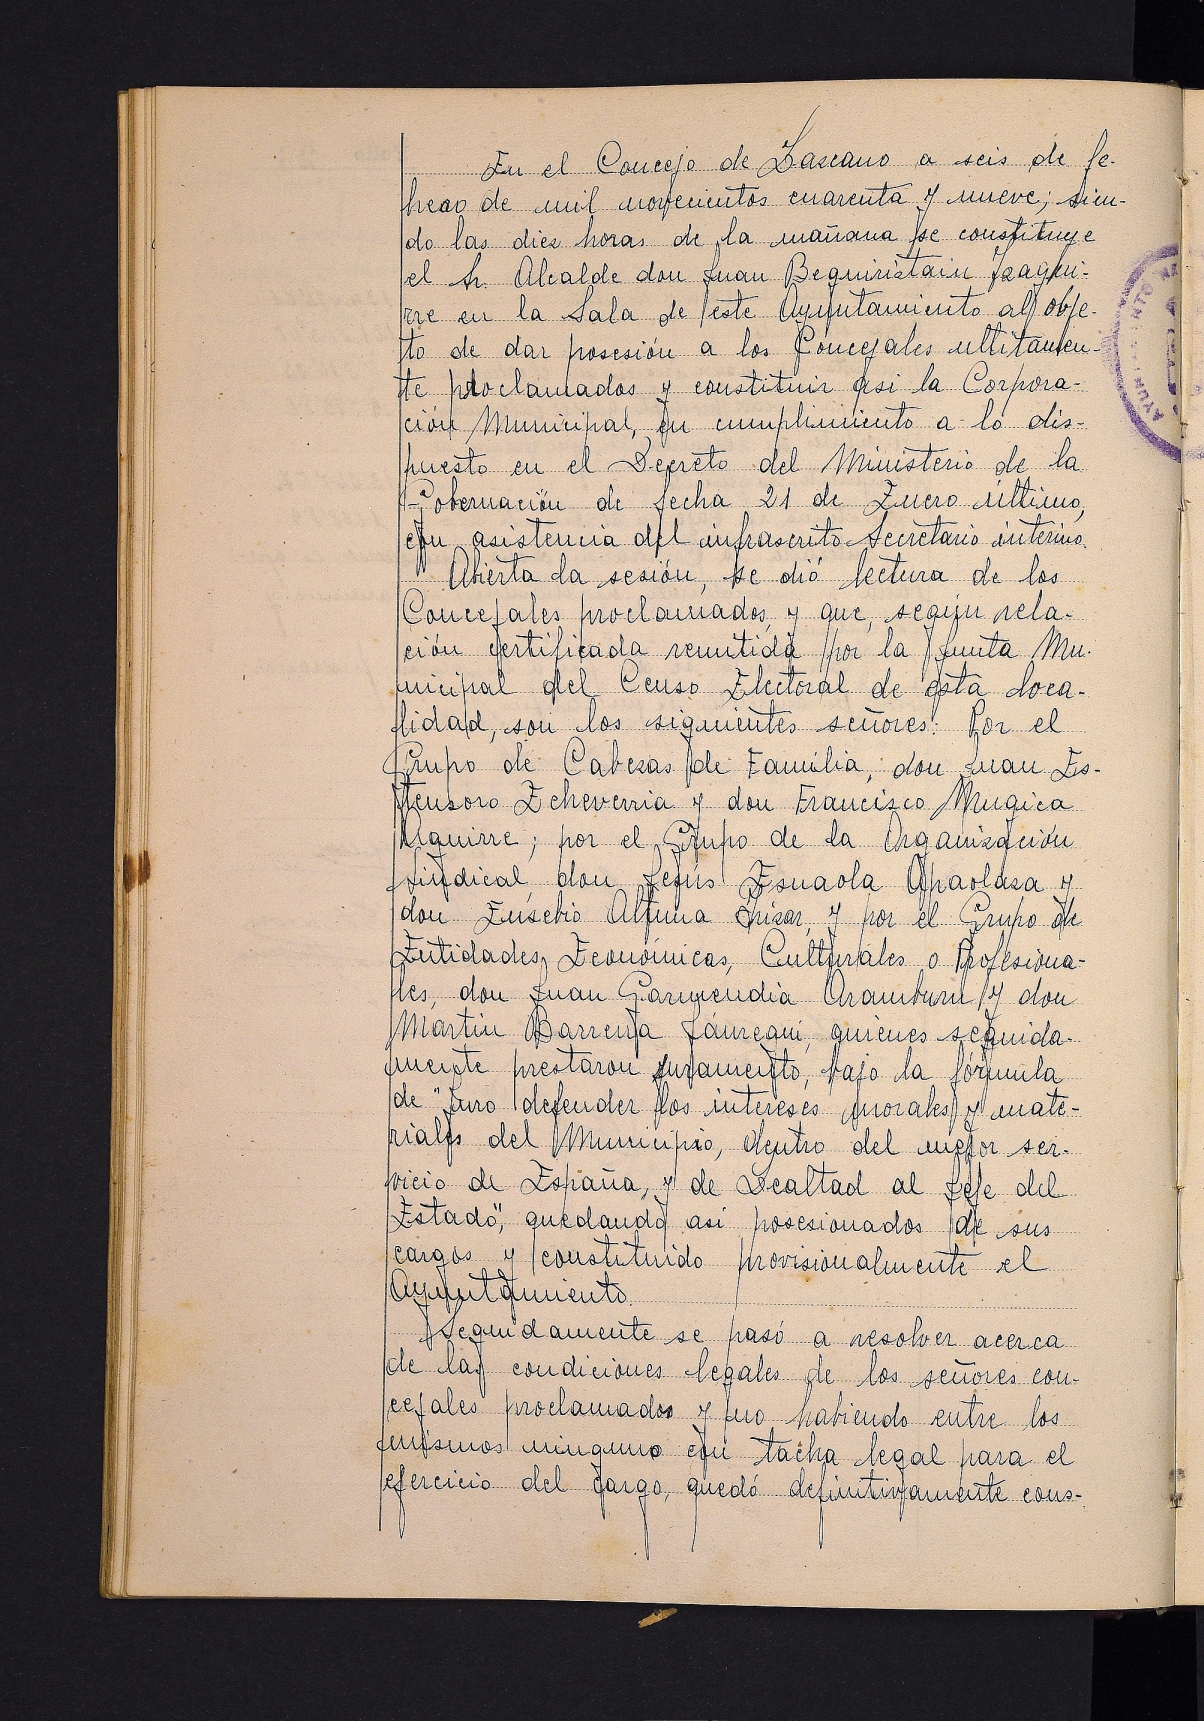 En el Concejo de Lazcano a seis de fe-
brero de mil novecientos cuarenta y nueve; sien-
do las diez horas de la mañana se constituye
el Sr. Alcalde don Juan Beguiristain Izagui-
rre en la Sala de este Ayuntamiento al obje-
to de dar posesión a los Concejales ultitamen-
te proclamados y constituir asi la Corpora-
ción Municipal, en cumplimiento a lo dis-
puesto en el Decreto del Ministerio de la
Gobernación de fecha 21 de Enero último,
con asistencia del infrascrito Secretario interino.
Abierta la sesión, se dió lectura de los
Concejales proclamados, y que, según rela-
ción certificada remitida por la Junta Mu-
nicipal del Censo Electoral de esta loca-
lidad, son los siguientes señores: Por el
Grupo de Cabezas de Familia, don Juan Es-
tensoro Echeverria y don Francisco Mugica
Aguirre; por el Grupo de la Organización
Sindical don Jesús Esnaola Apaolaza y
don Eusebio Altuna y por el Grupo de
Entidades Económicas, Culturales o Profesiona-
les, don Juan Garmendia Aramburu y don
Martin Barrena Jáuregui, quienes seguida-
mente prestaron juramento, bajo la fórmula
de "Juro defender los intereses morales y mate-
riales del Municipio, dentro del mejor ser-
vicio de España, y de Lealtad al Jefe del
Estado", quedando asi posesionados de sus
cargos y constituido provisionalmente el
Ayuntamiento.
Seguidamente se pasó a resolver acerca
de las condiciones legales de los señores con-
cejales proclamados y no habiendo entre los
mismos ninguno con tacha legal para el
ejercicio del cargo, quedó definitivamente cons-